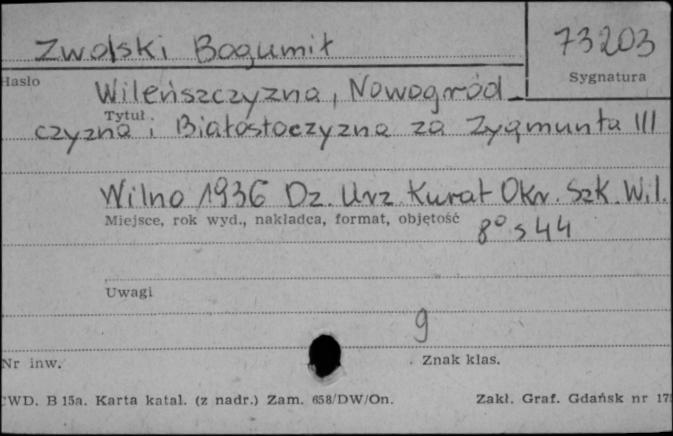 Zwolski Bogumił
73203
Hasło
Sygnatura
Wileńszczyzna, Nowogród-
Tytuł
czyzna i Białostoczyzna za Zygmunta III
Wilno 1936 Dz. Urz. Kurat Okr. Szk. Wil.
Miejsce, rok wyd., nakładca, format, objętość
8° s 44
Uwagi
9
Nr inw.
Znak klas.
CWD. B 15a. Karta katal. (z nadr.) Zam. 658/DW/On.
Zakł. Graf. Gdańsk nr 17